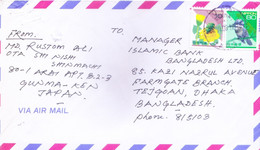 FROM.
MD. RUSTOM ALI
OTA SHI NISHI
SHINMACHI
30-1 ARAI APT. B2-3
GUNMA-KEN
JAPAN.
VIA AIR MAIL
TO,
MANAGER
ISLAMIC BANK
BANGLADESH LTD.
85. KAZI NAZRUL AVENUE
FARMGATE BRANCH
TEJGOAN, DHAKA
BANGLADESH.
phone: 815103